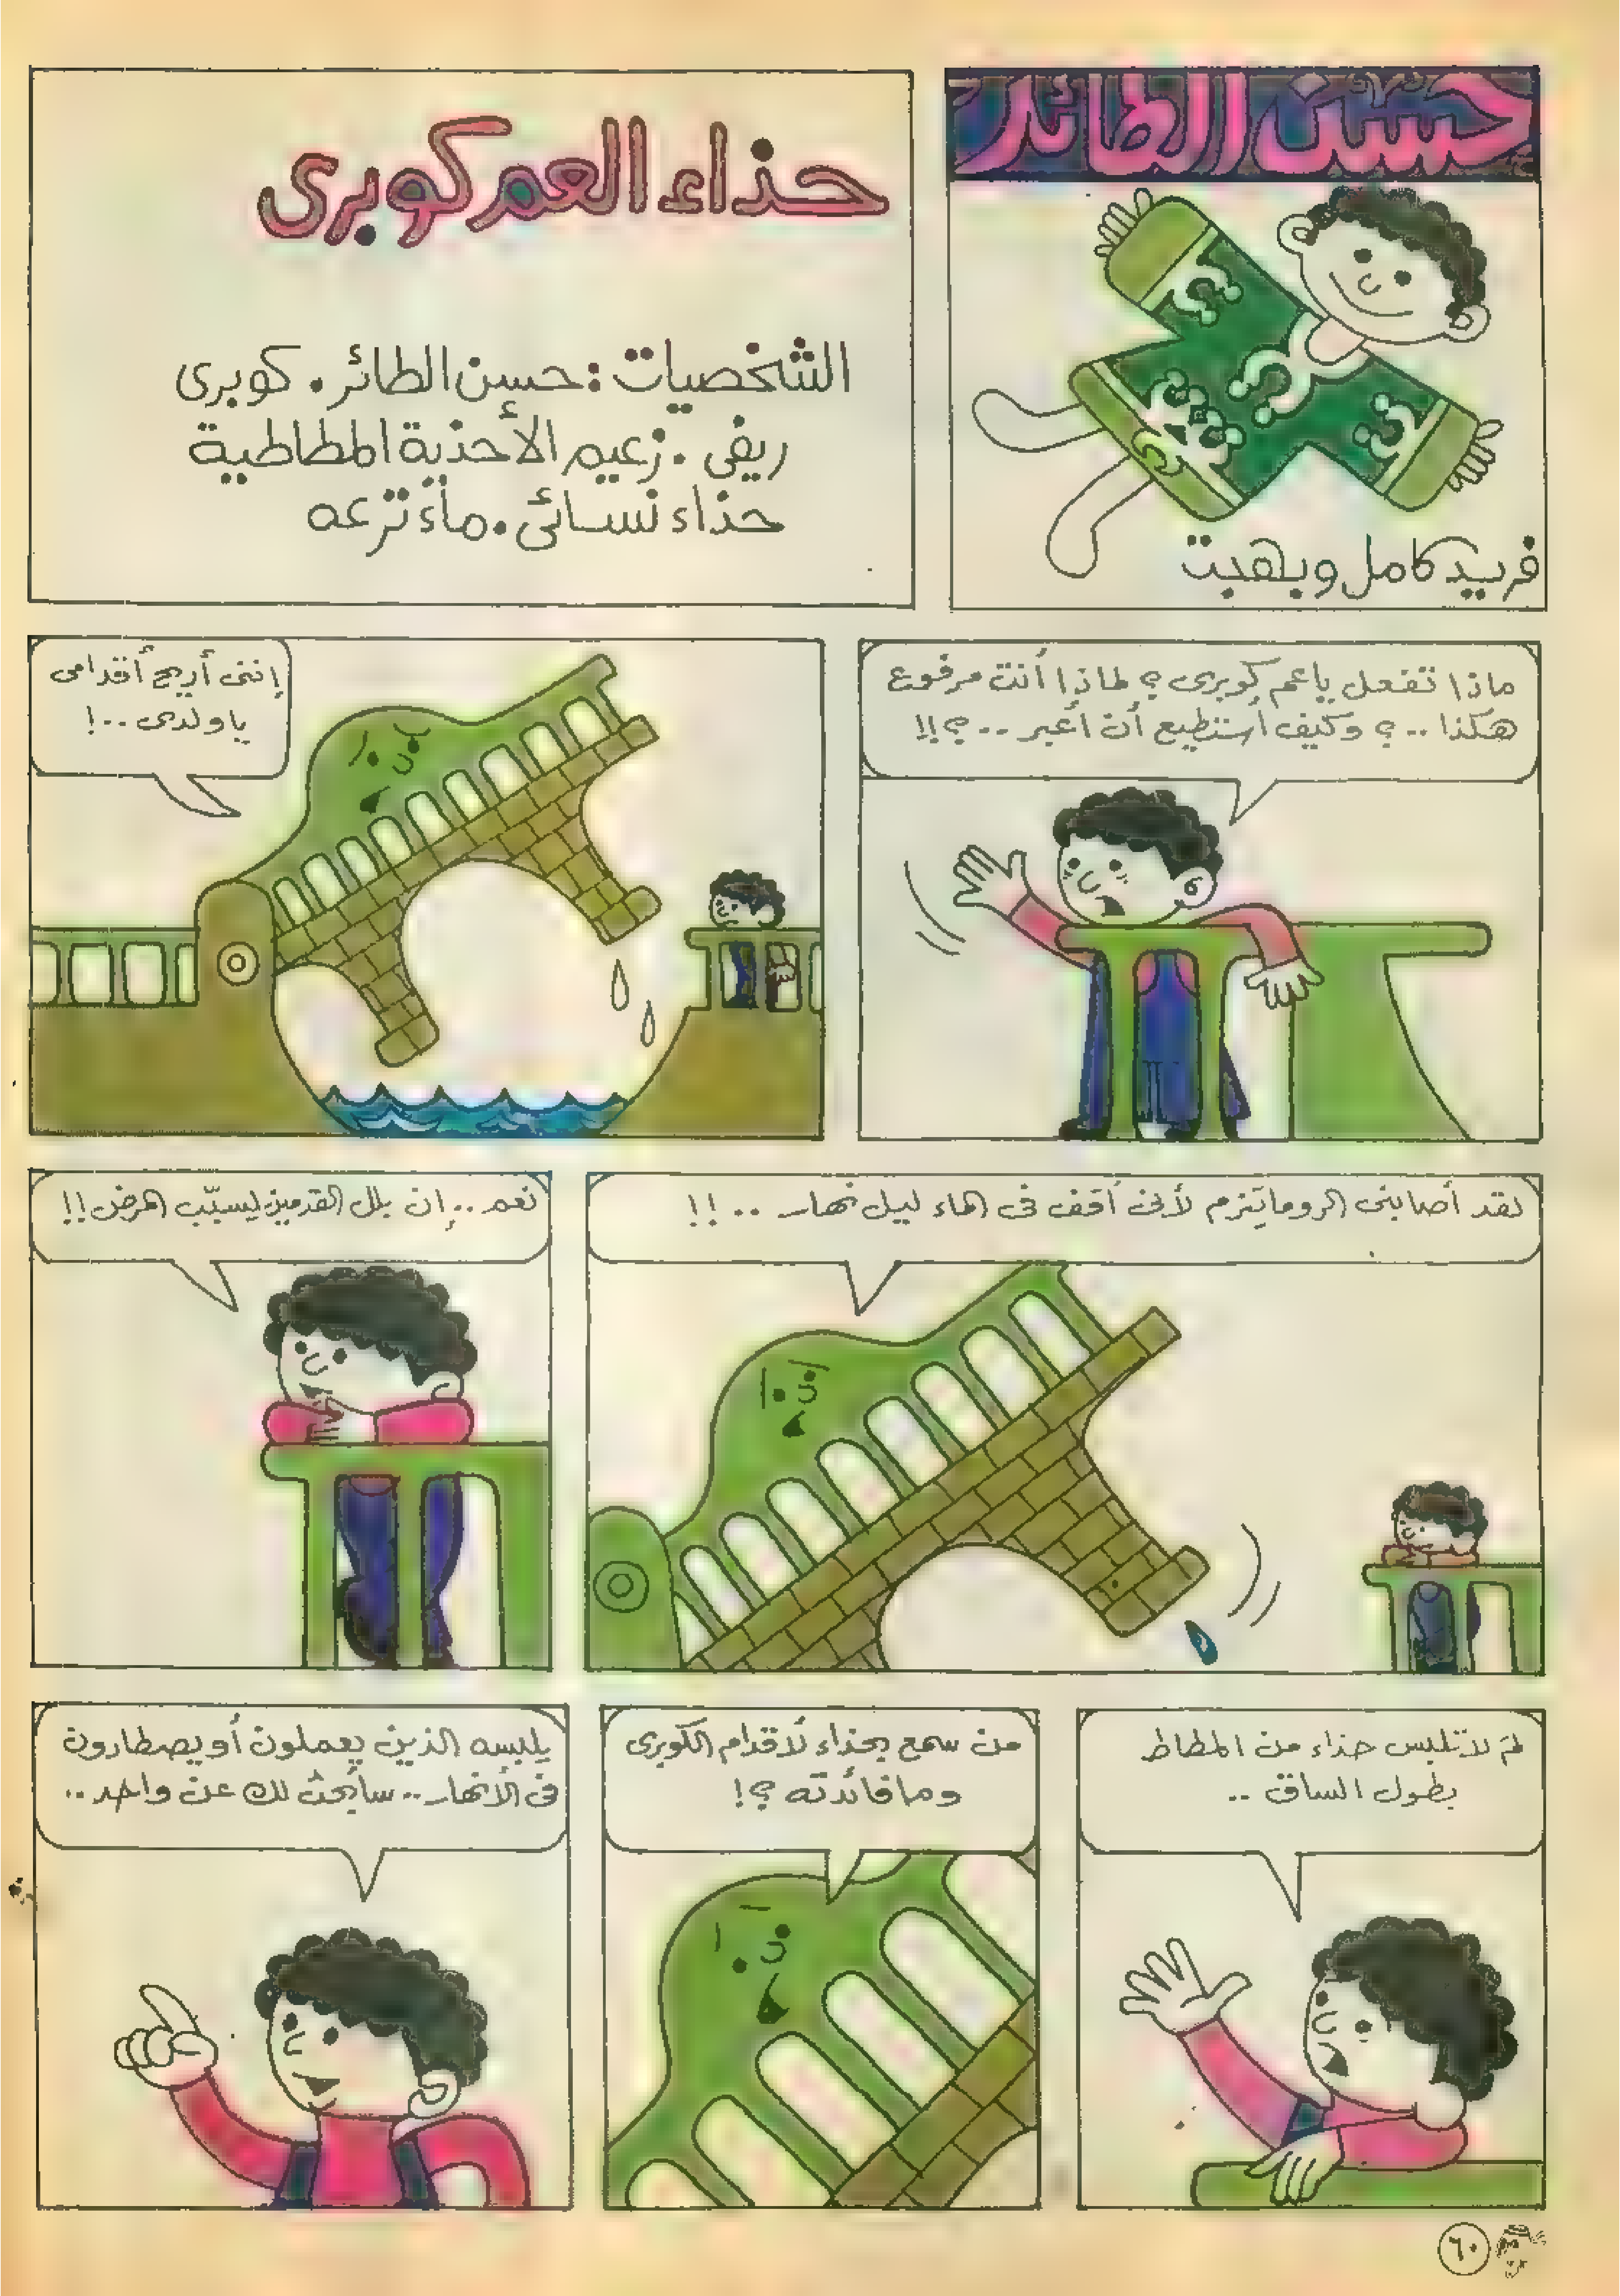 حسن الطائر
فريد كامل وبهجت
حذاء العم كوبرى
الشخصيات : حسن الطائر . كوبرى
ريفى . زعيم الأحذية المطاطية
حذاء نسائى . ماء ترعه
ماذا تفعل ياعم كوبرى ؟ لماذا أنت مرفوع
هكذا .. ؟ وكيف أستطيع أن أعبر .. ؟!!
إننى أريح أقدامى
ياولدى ..!
لقد أصابنى الروماتيزم لأنى أقف فى الماء ليل نهار .. !!
نعم .. إن بلل القدمين ليسبّب المرض !!
لم لا تلبس حذاء من المطاط
بطول الساق ..
من سمع بحذاء لأقدام الكوبرى
وما فائدته ؟!
يلبسه الذين يعملون أو يصطادون
فى الأنهار .. سأبحث لك عن واحد ..
٦٠